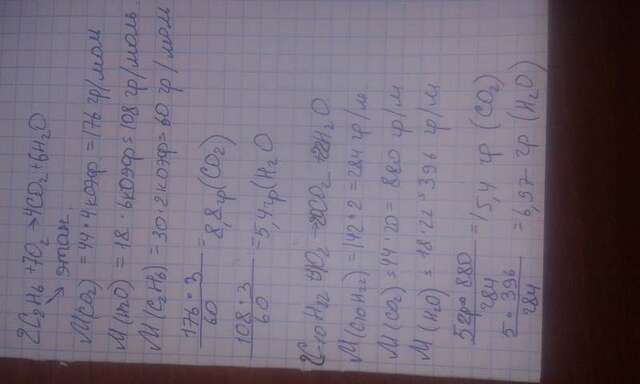 2C₂H₆ + 7O₂ → 4CO₂ + 6H₂O
этан.
M(CO₂) = 44 · 4 коэф = 176 гр/мом
M(H₂O) = 18 · 6 коэф = 108 гр/моль.
M(C₂H₆) = 30 · 2 коэф = 60 гр/моль
176 · 3
60
= 8,8 гр (CO₂)
108 · 3
60
= 5,4 гр (H₂O
2C₁₀H₂₂ O₂ → 20CO₂ 22H₂O
M(C₁₀H₂₂) = 142 · 2 = 284 гр/м.
M(CO₂) = 44 · 20 = 880 гр/м
M(H₂O) = 18 · 22 = 396 гр/м
5гр · 880
284
= 15,4 гр (CO₂)
5 · 396
284
= 6,97 гр (H₂O)